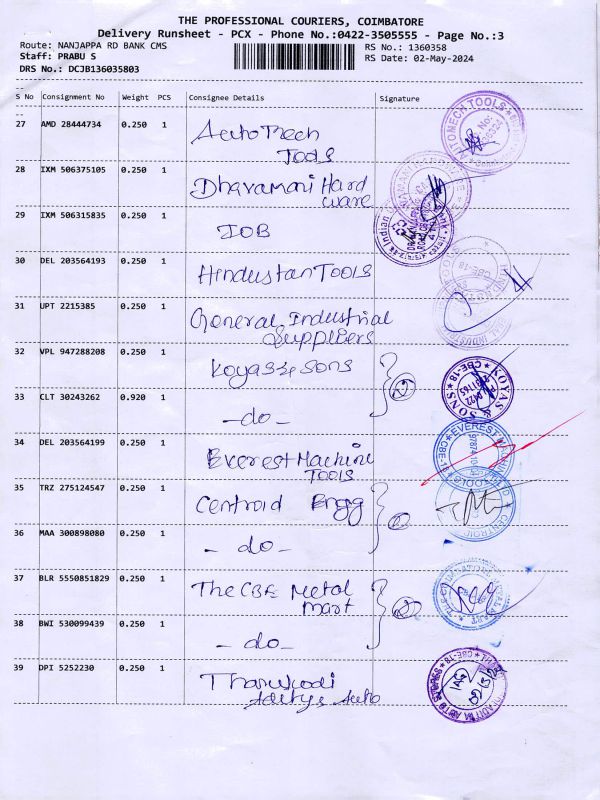 THE PROFESSIONAL COURIERS, COIMBATORE
Delivery Runsheet - PCX - Phone No.:0422-3505555 - Page No.:3
Route: NANJAPPA RD BANK CMS
RS No.: 1360358
Staff: PRABU S
RS Date: 02-May-2024
DRS No.: DCJB136035803
S No Consignment No Weight PCS Consignee Details Signature
27 AMD 28444734 0.250 1 AutoMech
Tools
28 IXM 506375105 0.250 1 Dhavamani Hard
ware
29 IXM 506315835 0.250 1 IOB
30 DEL 203564193 0.250 1 Hindustan TOOLS
31 UPT 2215385 0.250 1 General Industrial
Suppliers
32 VPL 947288208 0.250 1 Koyas & Sons
33 CLT 30243262 0.920 1 -do-
34 DEL 203564199 0.250 1 Everest Machine
TOOLS
35 TRZ 275124547 0.250 1 Centroid Engg
36 MAA 300898080 0.250 1 -do-
37 BLR 5550851829 0.250 1 The CBE Metal
Mart
38 BWI 530099439 0.250 1 -do-
39 DPI 5252230 0.250 1
Aditya Auto
AUTOMECH TOOLS
KOYAS & SONS
CBE-18